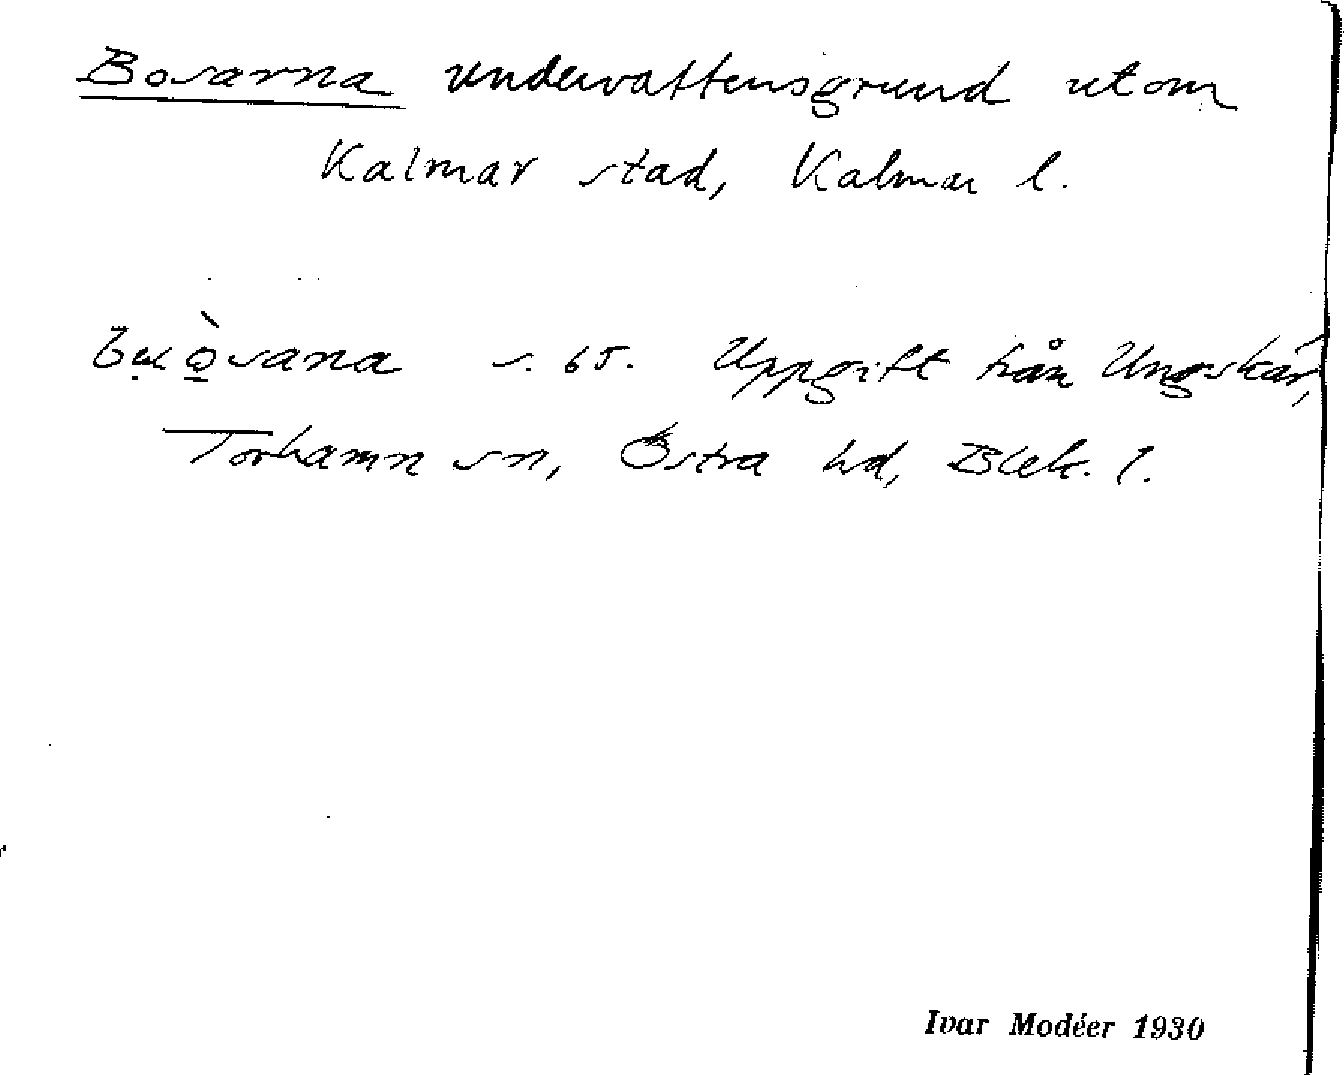 Bosarna undervattensgrund utom
Kalmar stad, Kalmar l.
s. 65. Uppgift från Ungskär,
Torhamn sn, Östra hd, Blek. l.
Ivar Modéer 1930